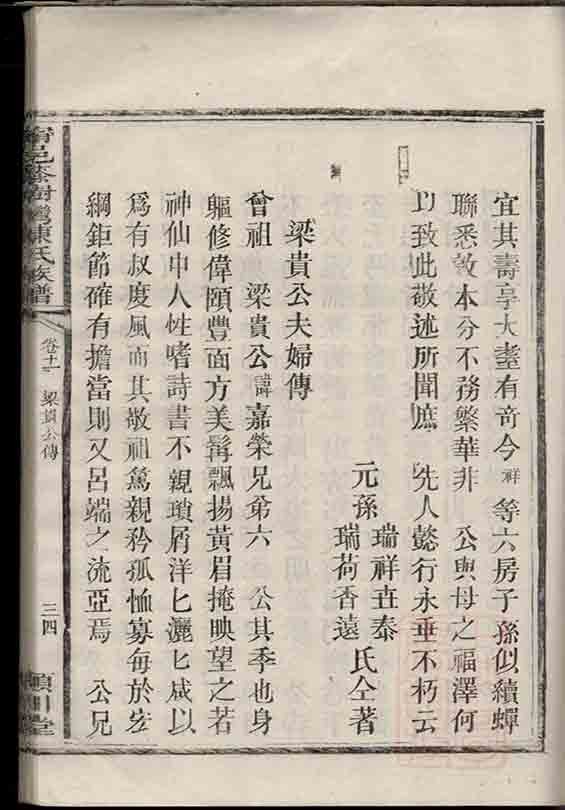 宜其壽享大耋有奇今祥等六房子孫似續蟬
聯悉敦本分不務繁華非 公與母之福澤何
以致此敬述所聞庶 先人懿行永垂不朽云
元孫 瑞祥 壵泰 瑞荷 香遠 氏仝著
梁貴公夫婦傳
曾祖 梁貴公諱嘉榮兄弟六 公其季也身
軀修偉頤豐面方美髯飄揚黃眉掩映望之若
神仙中人性嗜詩書不親瑣屑洋匕灑匕咸以
爲有叔度風而其敬祖篤親矜孤恤寡每於宏
綱鉅節確有擔當則又呂端之流亞焉 公兄
甯邑茶樹灣陳氏族譜
卷十二
梁貴公傳
三四
潁川堂